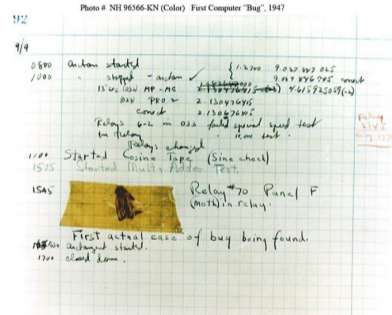 Photo # NH 96566-KN (Color) First Computer "Bug", 1947
92
9/9
0800 antan started
1000 " stopped - antan ✓
{ 1.2700 9.037 847 025
9.037 846 995 correct
13"uc (032) MP - MC
(033) PRO 2 2.130476415
correct 2.130676415
Relays 6-2 in 033 failed special speed test
in relay " test.
Relays changed
1100 Started Cosine Tape (Sine check)
1525 Started Multi Adder Test.
1545 Relay #70 Panel F
(moth) in relay.
First actual case of bug being found.
antangent started.
1700 closed down.